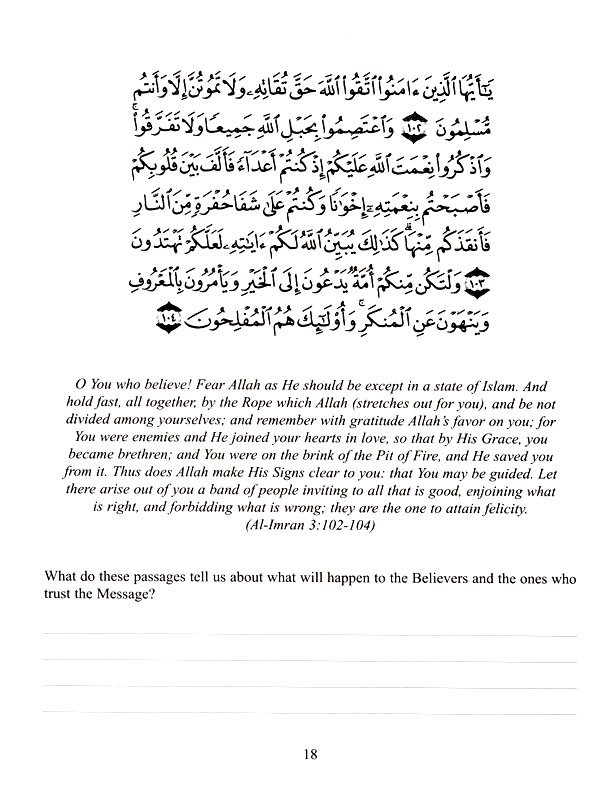 يَـٰٓأَيُّهَا ٱلَّذِينَ ءَامَنُوا۟ ٱتَّقُوا۟ ٱللَّهَ حَقَّ تُقَاتِهِۦ وَلَا تَمُوتُنَّ إِلَّا وَأَنتُم
مُّسْلِمُونَ ١٠٢ وَٱعْتَصِمُوا۟ بِحَبْلِ ٱللَّهِ جَمِيعًا وَلَا تَفَرَّقُوا۟ ۚ
وَٱذْكُرُوا۟ نِعْمَتَ ٱللَّهِ عَلَيْكُمْ إِذْ كُنتُمْ أَعْدَآءً فَأَلَّفَ بَيْنَ قُلُوبِكُمْ
فَأَصْبَحْتُم بِنِعْمَتِهِۦٓ إِخْوَٰنًا وَكُنتُمْ عَلَىٰ شَفَا حُفْرَةٍ مِّنَ ٱلنَّارِ
فَأَنقَذَكُم مِّنْهَا ۗ كَذَٰلِكَ يُبَيِّنُ ٱللَّهُ لَكُمْ ءَايَـٰتِهِۦ لَعَلَّكُمْ تَهْتَدُونَ
١٠٣ وَلْتَكُن مِّنكُمْ أُمَّةٌ يَدْعُونَ إِلَى ٱلْخَيْرِ وَيَأْمُرُونَ بِٱلْمَعْرُوفِ
وَيَنْهَوْنَ عَنِ ٱلْمُنكَرِ ۚ وَأُو۟لَـٰٓئِكَ هُمُ ٱلْمُفْلِحُونَ ١٠٤
O You who believe! Fear Allah as He should be except in a state of Islam. And
hold fast, all together, by the Rope which Allah (stretches out for you), and be not
divided among yourselves; and remember with gratitude Allah's favor on you; for
You were enemies and He joined your hearts in love, so that by His Grace, you
became brethren; and You were on the brink of the Pit of Fire, and He saved you
from it. Thus does Allah make His Signs clear to you: that You may be guided. Let
there arise out of you a band of people inviting to all that is good, enjoining what
is right, and forbidding what is wrong; they are the one to attain felicity.
(Al-Imran 3:102-104)
What do these passages tell us about what will happen to the Believers and the ones who
trust the Message?
18